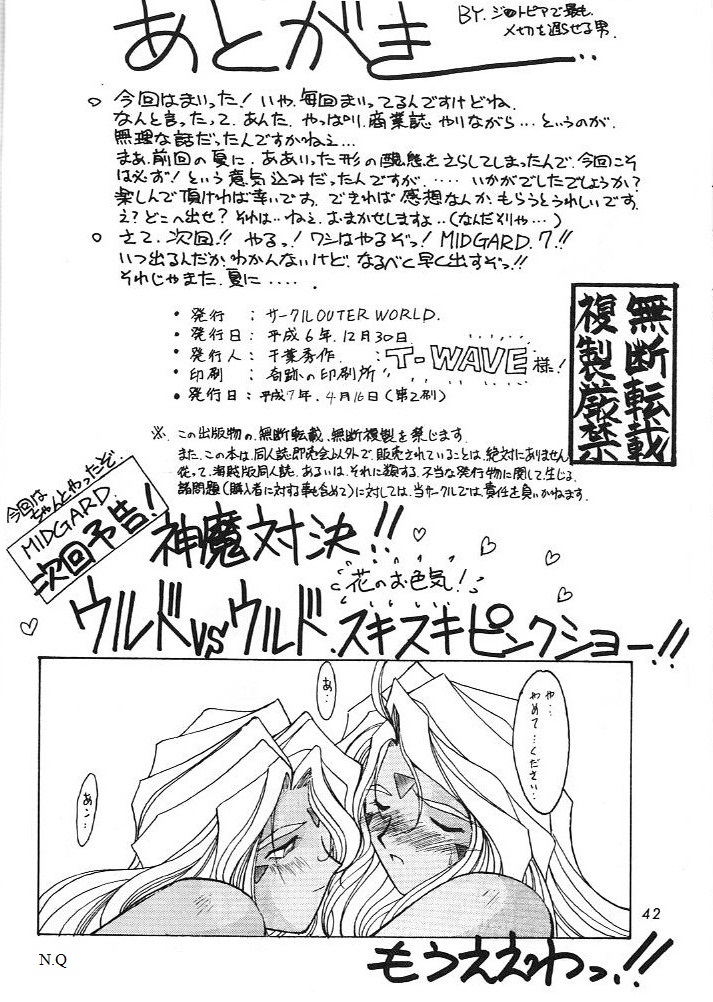 あとがき‥
BY. ジオトピアで最も
〆切を遅らせる男.
○ 今回はまいった!いや、毎回まいってるんですけどね.
なんと言ったって、あんた、やっぱり、商業誌やりながら…というのが、
無理な話だったんですかねえ…
まあ、前回の夏に、ああいった形の醜態をさらしてしまったんで、今回こそ
は必ず!という意気込みだったんですが、‥‥いかがでしたでしょうか?
楽しんで頂ければ幸いです、できれば感想なんか、もらうとうれしいです、
え?どこへ出せ?それは‥ねえ、おまかせしますよ‥(なんだそりゃ…)
○ さて、次回!!やるっ!ワシはやるぞっ!MIDGARD.7!!
いつ出るんだか、わかんないけど、なるべく早く出すぞっ!!
それじゃまた、夏に‥‥.
・発行 : サークルOUTER WORLD.
・発行日: 平成6年.12月30日.
・発行人: 千葉秀作. : T-WAVE様!
・印刷 : 奇跡の印刷所
・発行日: 平成7年.4月16日(第2刷)
無断転載
複製厳禁
※. この出版物の、無断転載、無断複製を禁じます.
また、この本は、同人誌即売会以外で、販売されていることは、絶対にありません
従って、海賊版同人誌、あるいは、それに類する、不当な発行物に関して生じる、
諸問題(購入者に対する事も含めて)に対しては、当サークルでは、責任を負いかねます.
今回は
ちゃんとやったぞ.
MIDGARD
次回予告!
神魔対決!!
花のお色気!
ウルドVSウルド.スキスキピンクショー!!
や…
やめて…ください…
あ…
あン…
42
もうええわっ!!
N.Q